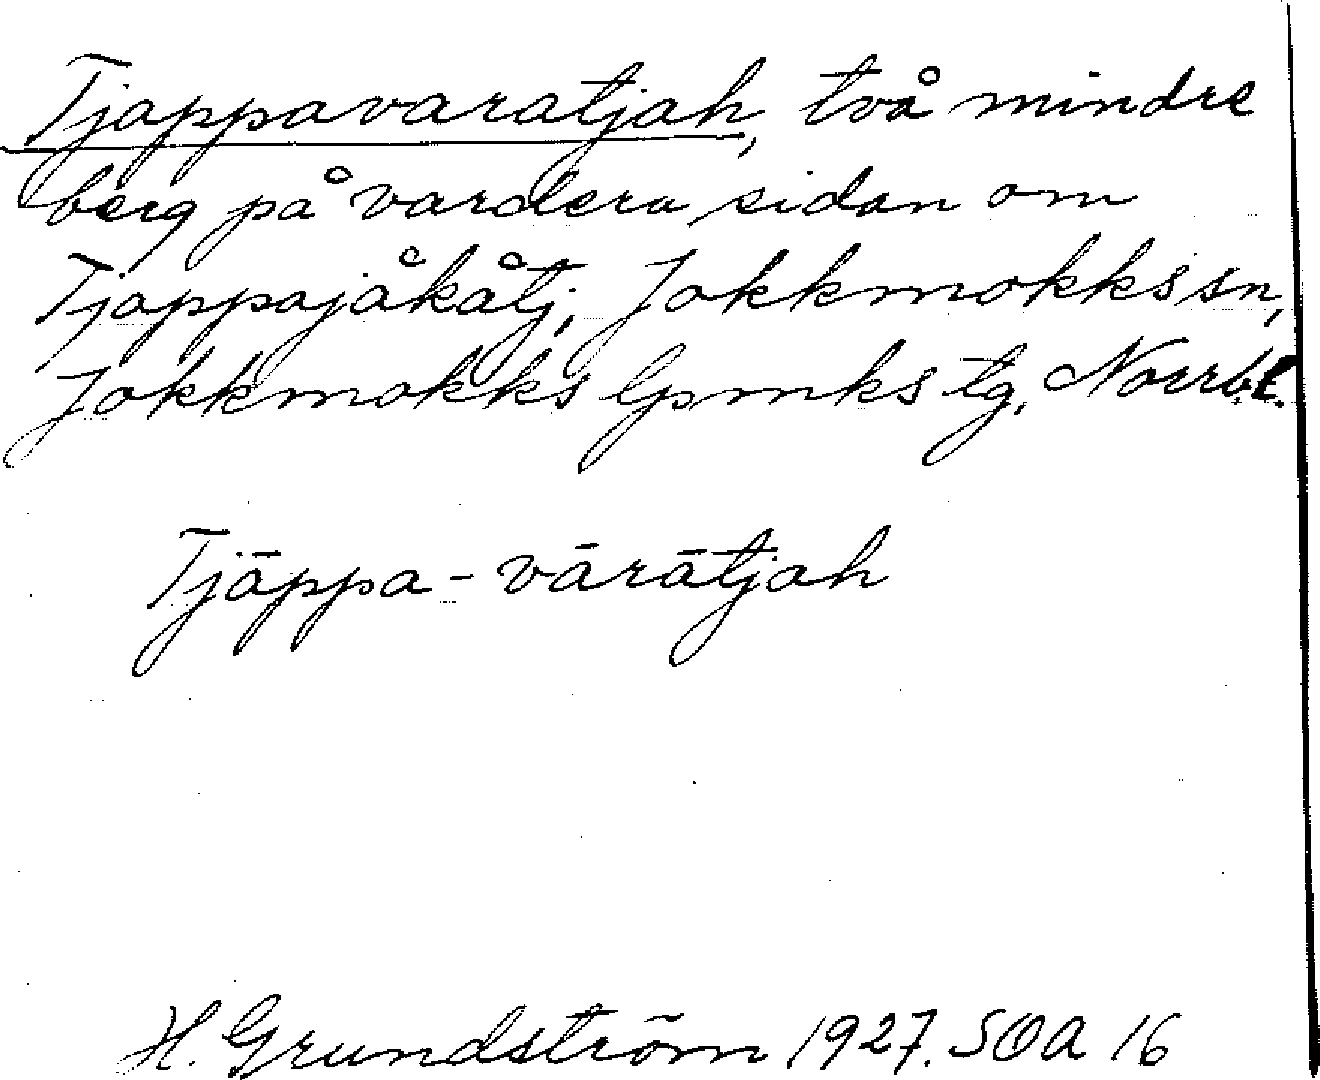 Tjappavaratjah, två mindre
berg på vardera sidan om
Tjappajåkåtj, Jokkmokks sn,
Jokkmokks lpmks tg, Norrb.l.
Tjāppa-vārātjah
H. Grundström 1927. SOA 16